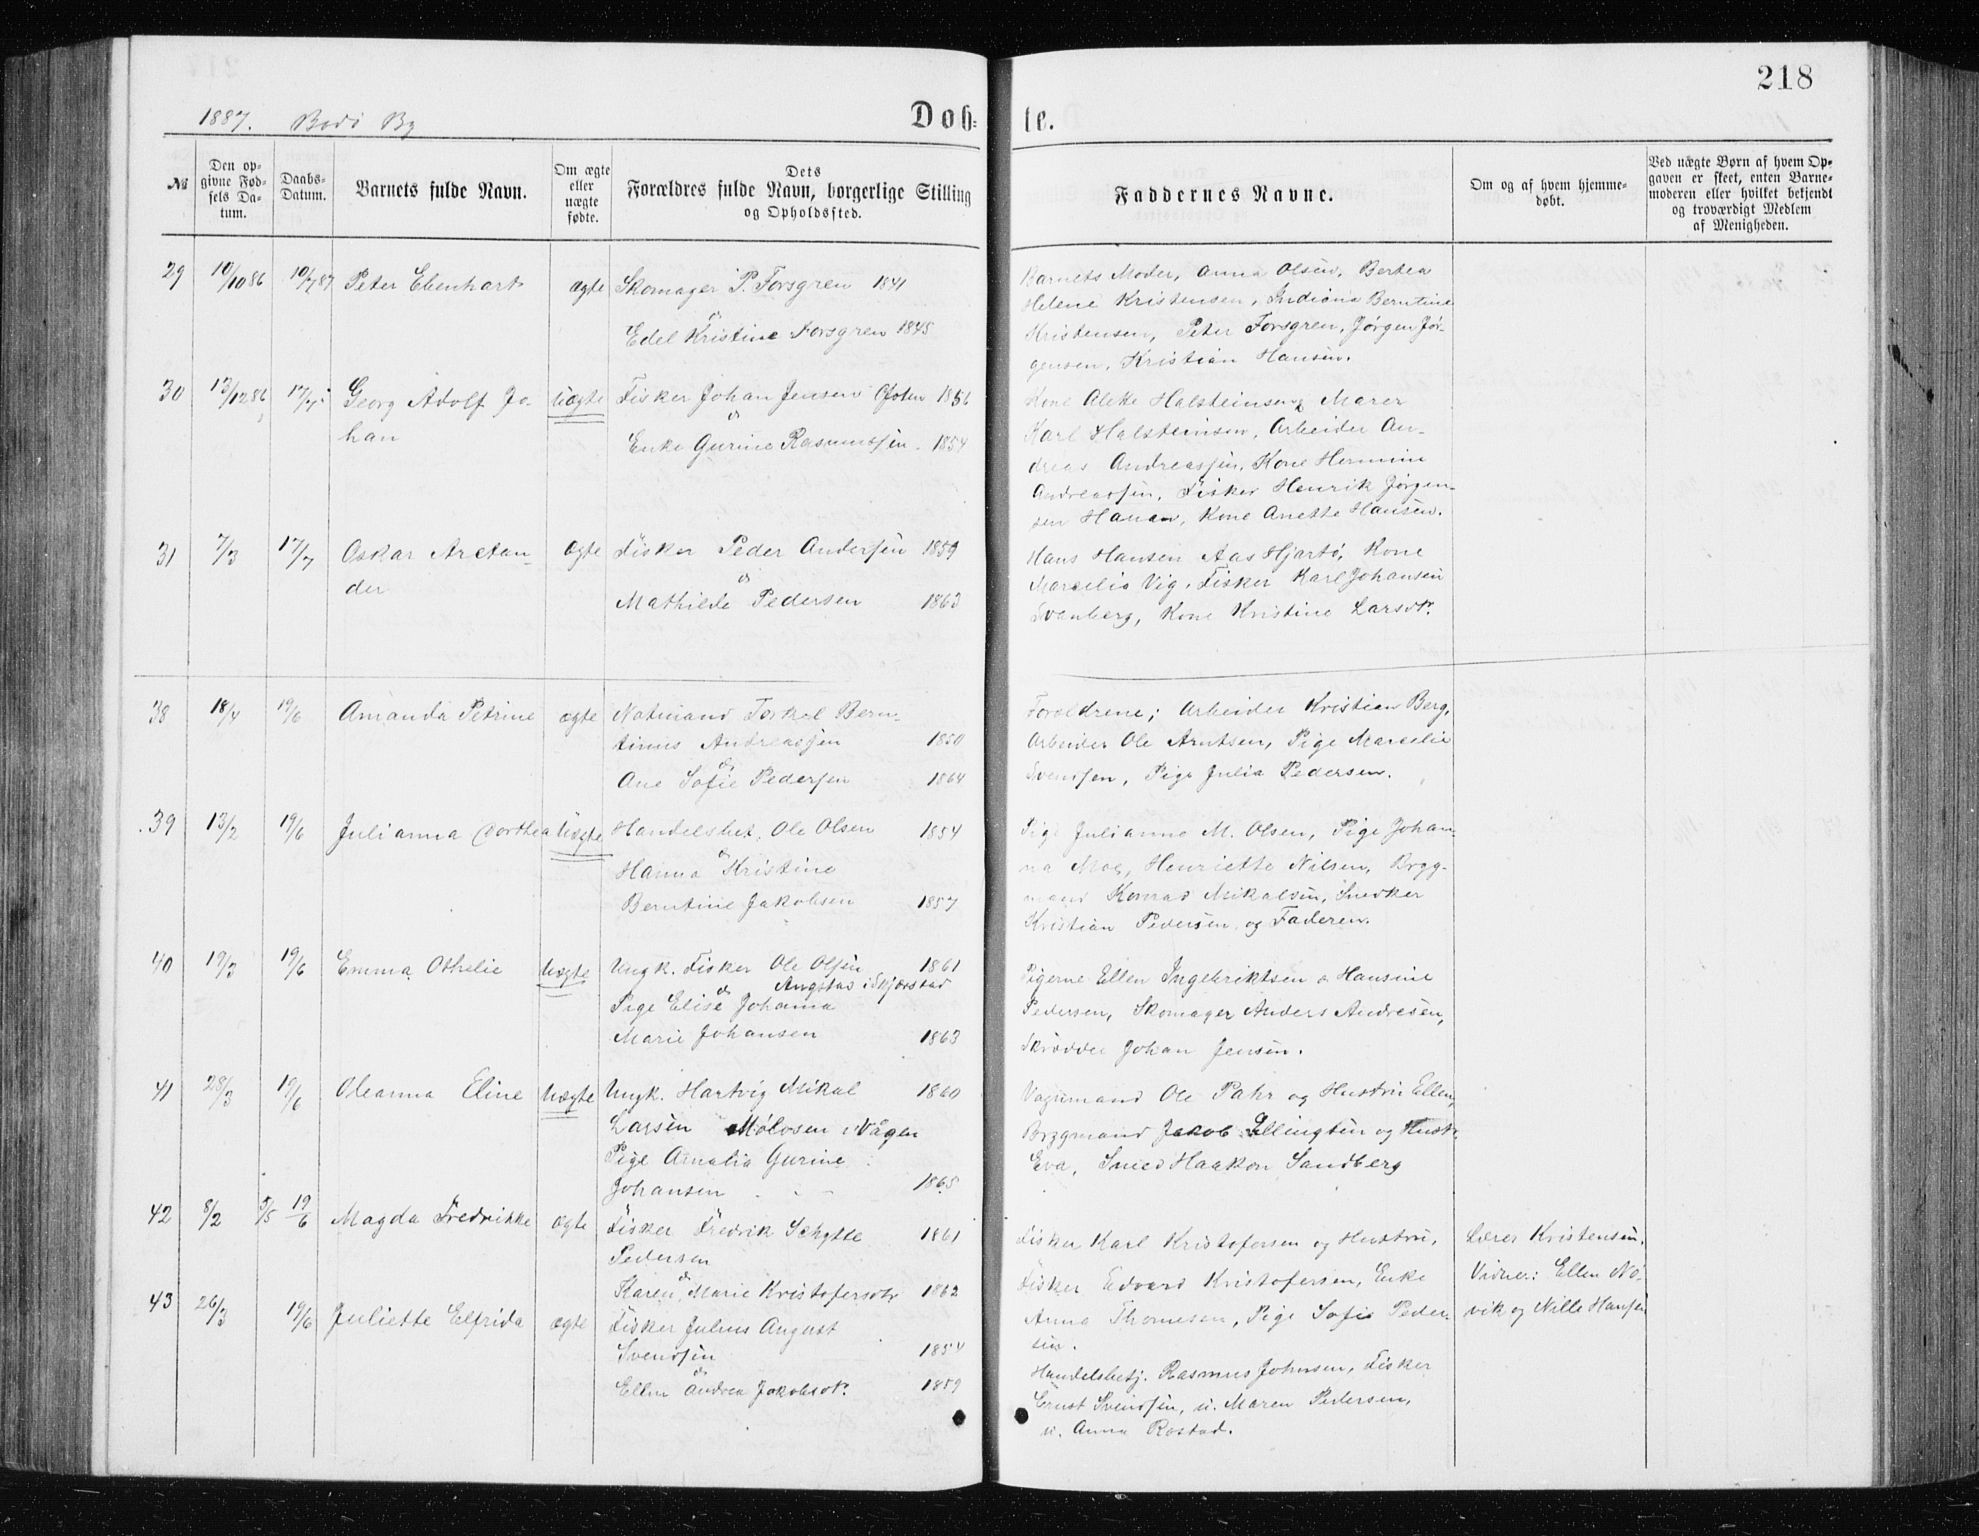 218
1887. Bodö By
Döb- te.
№
Den op-
givne Fød-
sels Da-
tum.
Daabs-
Datum.
Barnets fulde Navn.
Om ægte
eller
uægte
fødte.
Dets
Forældres fulde Navn, borgerlige Stilling
og Opholdssted.
Faddernes Navne.
Om og af hvem hjemme-
døbt.
Ved uægte Børn af hvem Op-
gaven er skeet, enten Barne-
moderen eller hvilket bekjendt
og troværdigt Medlem
af Menigheden.
29 10/10 86 10/7 87 Peter Ebenhart ægte Skomager P. Forsgren 1841
Edel Kristine Forsgren 1845
Barnets Moder, Anna Olsen, Bertea
Helene Kristensen, Indiana Berntine
Kristensen, Peter Forsgren, Jørgen Jør-
gensen, Kristian Hansen.
30 13/12 86 17/7 Georg Adolf Jo-
han
Uægte Fisker Johan Jensen Ofoten 1856
&
Enke Gurine Rasmussen. 1854
Kone Aleke Halsteinsen, Marer
Karl Halsteinsen, Arbeider An-
dreas Andreassen, Kone Hermine
Andreassen, Fisker Henrik Jørgen-
sen Hanan, Kone Anette Hansen.
31 7/3 17/7 Oskar Arctan-
der
ægte Fisker Peder Andersen 1859
&
Mathilde Pedersen 1863
Hans Hansen Aas Hjartö, Kone
Marselia Vig, Fisker Karl Johansen
Svanberg, Kone Kristine Larsdt.
38 18/4 19/6 Amanda Petrine ægte Notmand Torkel Bern-
tinus Andreassen 1850
&
Ane Sofie Pedersen 1864
Forældrene; Arbeider Kristian Berg,
Arbeider Ole Arntsen, Pige Marselie
Svensen, Pige Julia Pedersen.
39 13/2 19/6 Julianna Dorthea Uægte Handelsbet. Ole Olsen 1854
&
Hanna Kristine
Berntine Jakobsen 1857
Pige Julianne M. Olsen, Pige Johan-
na Moe, Henriette Nilsen, Brygg-
mand Konrad Mikalsen, Snedker
Kristian Pedersen og Faderen.
40 19/3 19/6 Emma Othelie Uægte Ungk. Fisker Ole Olsen 1861
Angstad i Skjerstad
&
Pige Elise Johanna
Marie Johansen 1863
Pigerne Ellen Ingebriktsen & Hansine
Pedersen, Skomager Anders Andresen,
Skrædder Johan Jensen.
41 28/3 19/6 Oleanna Eline Uægte Ungk. Hartvig Mikal 1860
Larsen Molosen i Vågen
Pige Amalia Gurine
Johansen 1865
Ole Pahr og Hustru Ellen,
Bryggmand Jakob Ellingsen og Hustr.
Eva, Smed Haakon Sandberg
42 8/2 3/5 19/6 Magda Fredrikke ægte Fisker Fredrik Schytte 1861
Pedersen
&
Karen Marie Kristofersdtr 1862
Fisker Karl Kristofersen og Hustru,
Fisker Edvard Kristofersen, Enke
Anna Thomesen, Pige Sofie Peder-
sen.
Lærer Kristensen,
Vidner: Ellen Nö-
vik og Nille Hansen
43 26/3 19/6 Juliette Elfrida ægte Fisker Julius August
Svensen 1854
&
Ellen Andrea Jakobsdt. 1859
Handelsbetj. Rasmus Johnsen, Fisker
Ernst Svensen, u. Maren Pedersen,
u. Anna Rostad.